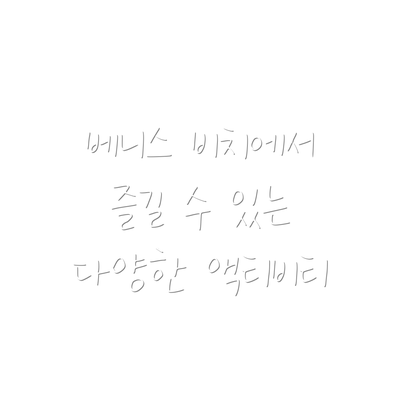 베니스 비치에서
즐길 수 있는
다양한 액티비티